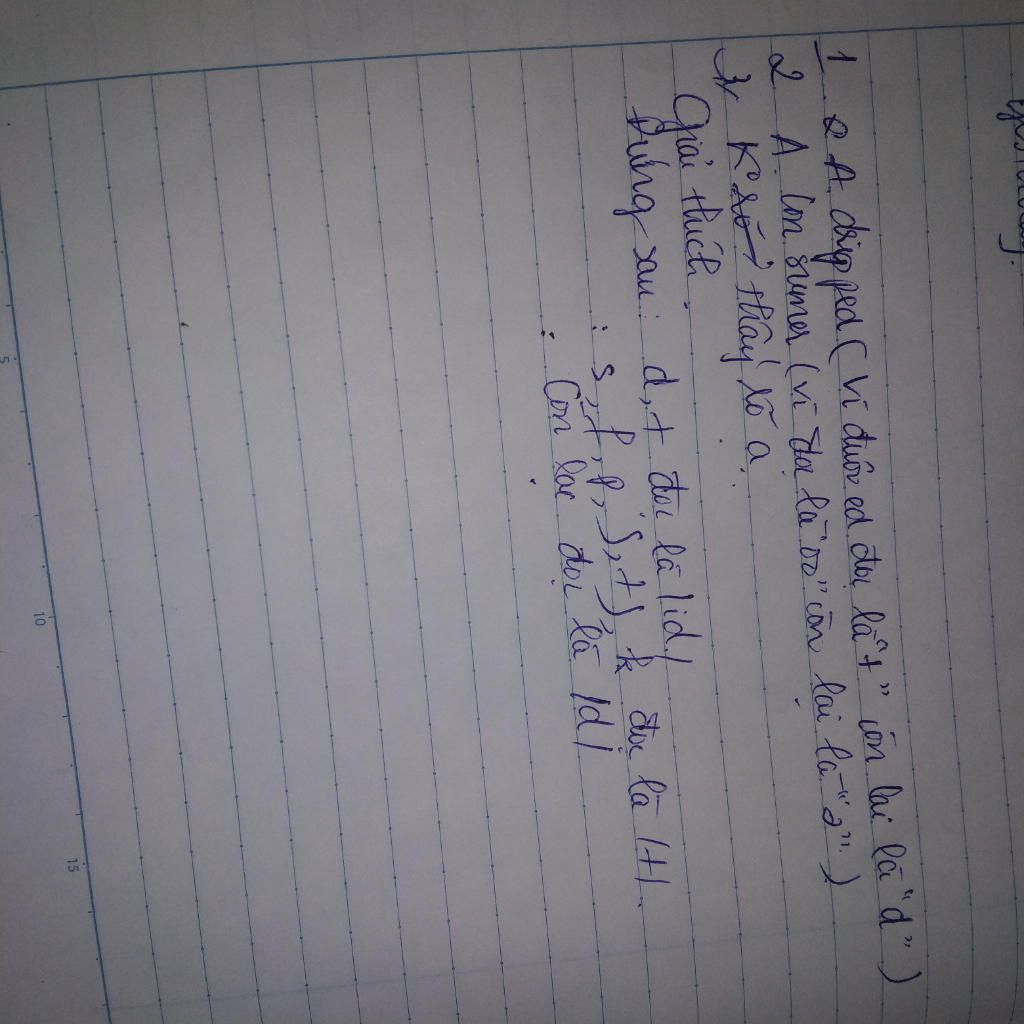 1 A. dripped (vì đuôi ed đọc là "t" còn lại là "d")
2 A. Con sumer (vì đọc là "ʊ" còn lại là "ə")
3, K thấy rõ ạ.
Giải thích:
Đứng sau: d, t đọc là /id/
: s, f, p, ʃ, tʃ, k đọc là /t/.
: Còn lại đọc là /d/
5 10 15